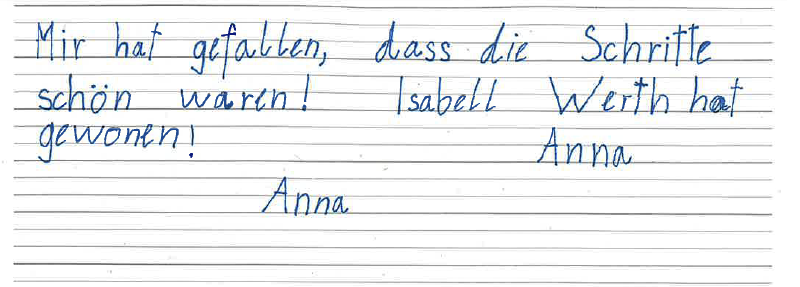 Mir hat gefallen, dass die Schritte
schön waren! Isabell Werth hat
gewonen!
Anna
Anna